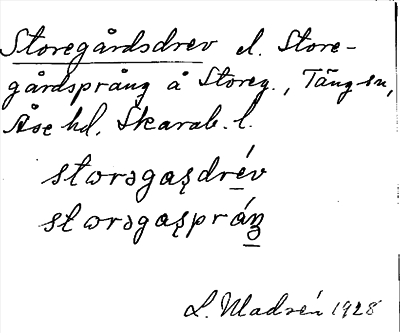 Storegårdsdrev el. Store-
gårdsprång å Storeg., Täng sn,
Åse hd. Skarab. l.
stωrəgaʂdrév
stωrəgaʂpráŋ
L. Madsén 1928